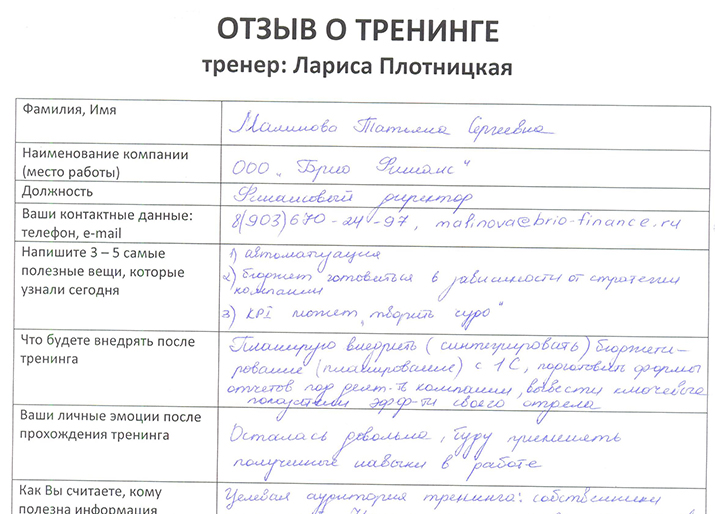 ОТЗЫВ О ТРЕНИНГЕ
тренер: Лариса Плотницкая
Фамилия, Имя
Малинова Татьяна Сергеевна
Наименование компании
(место работы)
ООО „Брио Финанс“
Должность
Финансовый директор
Ваши контактные данные:
телефон, e-mail
8(903)670-24-97, malinova@brio-finance.ru
Напишите 3 – 5 самые
полезные вещи, которые
узнали сегодня
1) автоматизация
2) бюджет готовиться в зависимости от стратегии
компании
3) KPI может „творить чудо“
Что будете внедрять после
тренинга
Планирую внедрить (синтегрировать) бюджети-
рование (планирование) с 1С, подготовить формы
отчетов под деят-ть компании, вывести ключевые
показатели эфф-ти своего отдела
Ваши личные эмоции после
прохождения тренинга
Осталась довольна, буду применять
полученные навыки в работе
Как Вы считаете, кому
полезна информация
Целевая аудитория тренинга: собственники